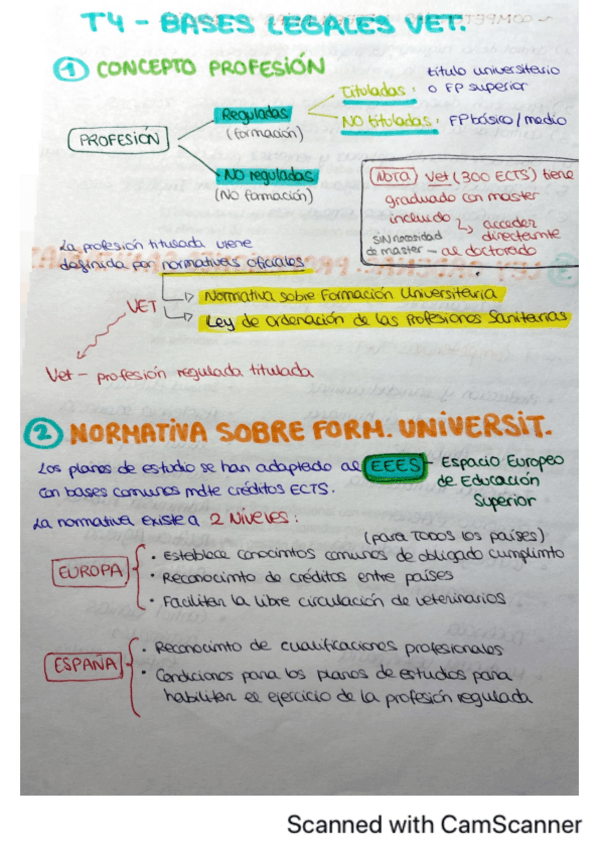 T4 - BASES LEGALES VET.
① CONCEPTO PROFESIÓN
PROFESIÓN
Reguladas
(formación)
Tituladas: título universitario
o FP superior
NO tituladas: FP básico/medio
NO reguladas
(NO formación)
Nota Vet (300 ECTS) tiene
graduado con master
incluido ↳ acceder
directamte
SIN necesidad
de master - al doctorado
La profesión titulada viene
definida por normativas oficiales
VET
↳ Normativa sobre Formación Universitaria
↳ Ley de Ordenación de las Profesiones Sanitarias
Vet - profesión regulada titulada
② NORMATIVA SOBRE FORM. UNIVERSIT.
Los planes de estudio se han adaptado al EEES - Espacio Europeo
de Educación
Superior
con bases comunes mdte créditos ECTS.
La normativa existe a 2 Niveles:
(para TODOS los países)
EUROPA
· Establece conocimtos comunes de obligado cumplimto
· Reconocimto de créditos entre países
· Facilitan la libre circulación de veterinarios
ESPAÑA
· Reconocimto de cualificaciones profesionales
· Condiciones para los planes de estudios para
habiliten el ejercicio de la profesión regulada
Scanned with CamScanner